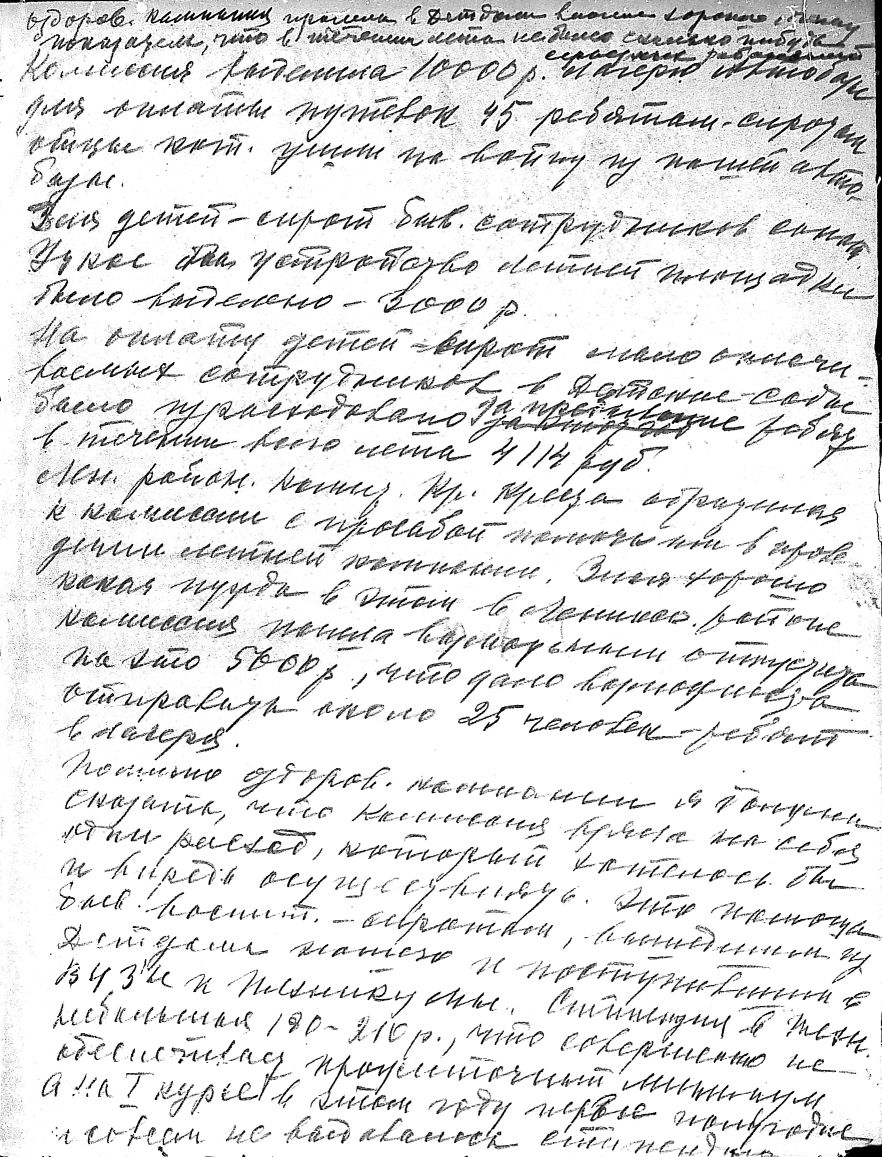 оздоров. кампания прошла в Детдоме вполне хорошо,
показателем, что в течении лета не было сколько нибудь
серьезных заболеваний
Комиссия выделила 10000 р. Лагерю Автобазы
для оплаты путевок 45 ребятам-сиротам
отцы кот. ушли на войну из нашей авто-
базы.
Для детей-сирот быв. сотрудников
Узкое на устройство летней площадки
было выделено - 3000 р.
На оплату детей-сирот мало оплачи-
ваемых сотрудников в Детские сады
было израсходовано за пребывание ребят
в течении всего лета 4114 руб.
Лен. район. комит. Кр. Креста обратился
к комиссии с просьбой помочь им в прове-
дении летней кампании. Зная хорошо
какая нужда в этом в Ленинск. районе
комиссия нашла возможным отпустить
на это 5000 р, что дало возможность
отправить около 25 человек ребят
в лагеря.
Помимо оздоров. кампании я должна
сказать, что комиссия взяла на себя
один расход, который хотелось бы
и впредь осуществлять. Это помощь
быв. воспит. - сиротам, вышедшим из
Детдома и поступившим в
ВУЗ'ы и техникумы. Стипендия в техн.
небольшая 180-210 р., что совершенно не
обеспечивает прожиточный минимум
А на I курсе в этом году первое полугодие
и совсем не выдавалась стипендия